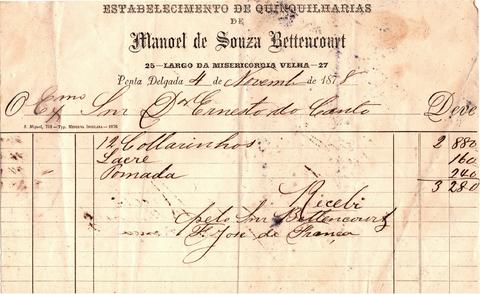 ESTABELECIMENTO DE QUINQUILHARIAS
DE
Manoel de Souza Bettencourt
25—LARGO DA MISERICORDIA VELHA—27
Ponta Delgada 4 de Novemb de 1878
O Exmo Snr Dor Ernesto do Canto Deve
S. Miguel, Typ. MINERVA INSULANA—1876
12 Collarinhos 2 880
Lacre 160
Pomada 240
3 280
Recebi
pelo Snr Bettencourt
F. José de França